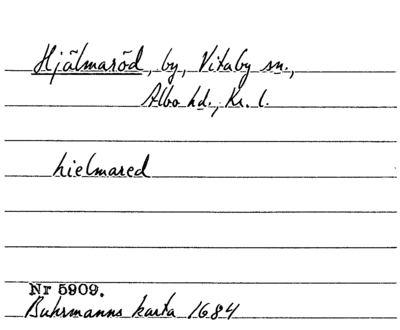 Hjälmaröd, by, Vitaby sn.,
Albo hd., Kr. l.
hielmared
Nr 5909.
Buhrmanns karta 1684